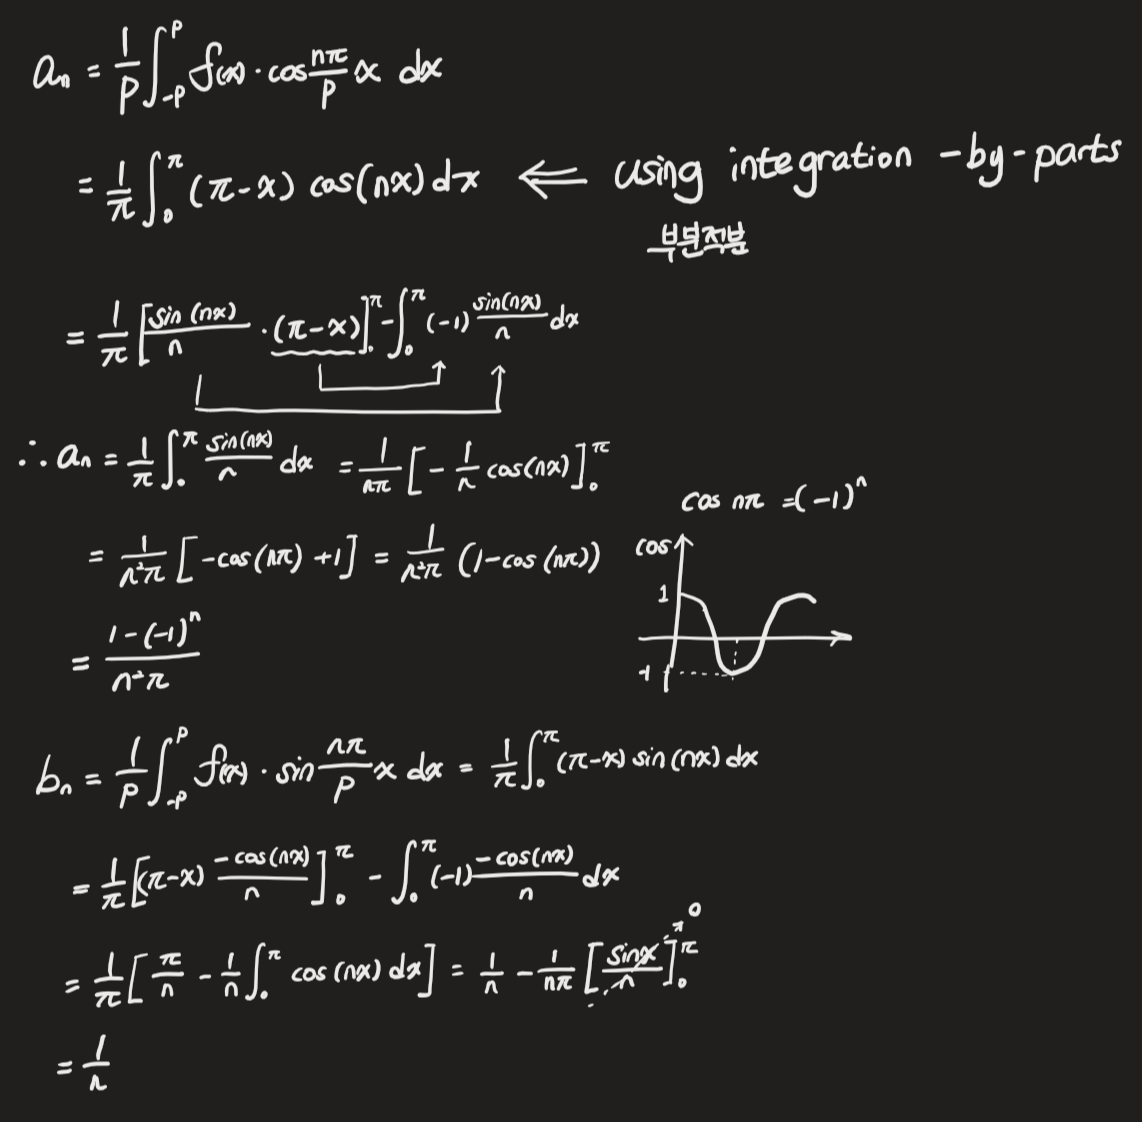 aₙ = 1/p ∫₋ₚᵖ f(x) · cos nπ/p x dx
= 1/π ∫₀^π (π-x) cos(nx) dx ⇐ using integration -by-parts
부분적분
= 1/π [sin(nx)/n · (π-x)]₀^π - ∫₀^π (-1) sin(nx)/n dx
∴ aₙ = 1/π ∫₀^π sin(nx)/n dx = 1/nπ [- 1/n cos(nx)]₀^π
cos nπ = (-1)ⁿ
= 1/n²π [-cos(nπ) +1] = 1/n²π (1-cos(nπ))
cos
1
-1
= 1-(-1)ⁿ/n²π
bₙ = 1/p ∫₋ₚᵖ f(x) · sin nπ/p x dx = 1/π ∫₀^π (π-x) sin(nx) dx
= 1/π [(π-x) -cos(nx)/n]₀^π - ∫₀^π (-1) -cos(nx)/n dx
= 1/π [π/n - 1/n ∫₀^π cos(nx) dx] = 1/n - 1/nπ [sinx/n]₀^π 0
= 1/n